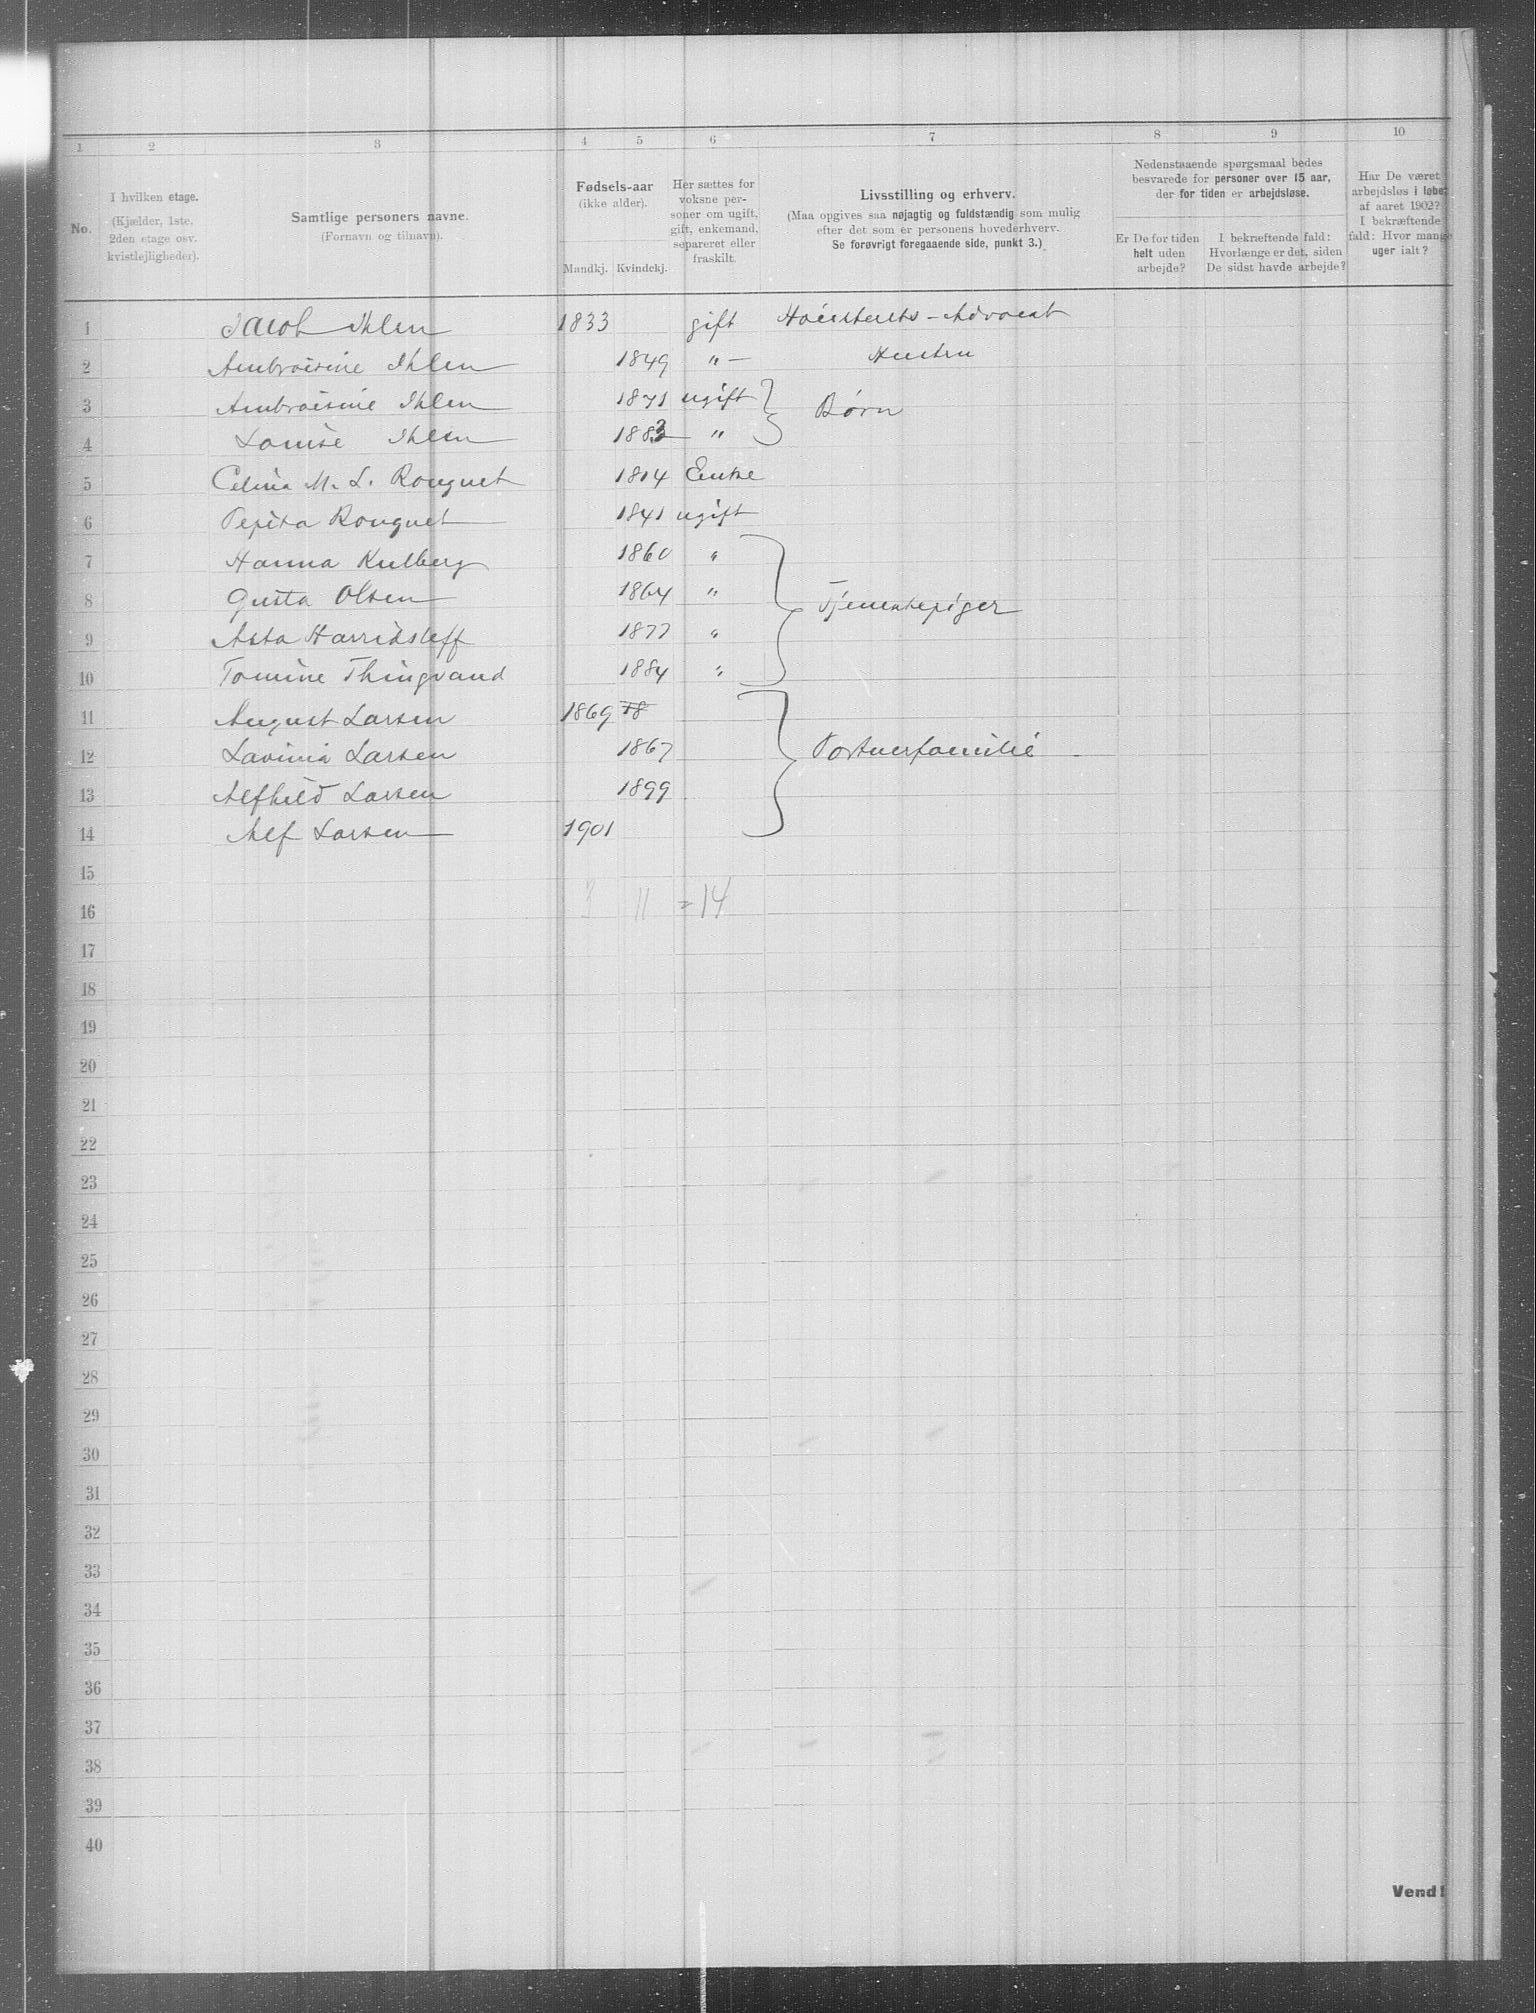 1 2 3 4 5 6 7 8 9 10
No.
I hvilken etage.
(Kjælder, 1ste.
2den etage osv.
kvistlejligheder).
Samtlige personers navne.
(Fornavn og tilnavn).
Fødsels-aar
(ikke alder).
Mandkj. Kvindekj.
Her sættes for
voksne per-
soner om ugift,
gift, enkemand,
separeret eller
fraskilt.
Livsstilling og erhverv.
(Maa opgives saa nøjagtig og fuldstændig som mulig
efter det som er personens hovederhverv.
Se forøvrigt foregaaende side, punkt 3.)
Nedenstaaende spørgsmaal bedes
besvarede for personer over 15 aar,
der for tiden er arbejdsløse.
Er De for tiden
helt uden
arbejde?
I bekræftende fald:
Hvorlænge er det, siden
De sidst havde arbejde?
Har De været
arbejdsløs i løbet
af aaret 1902?
I bekræftende
fald: Hvor mange
uger ialt?
1 Jacob Ihlen 1833 gift Høiesterets-Advocat
2 Ambroisine Ihlen 1849 "— Hustru
3 Ambroisine Ihlen 1871 ugift } Børn
4 Louise Ihlen 1883 "
5 Celina M. L. Rouquet 1814 Enke
6 Pepita Rouquet 1841 ugift
7 Hanna Kulberg 1860 "
8 Gusta Olsen 1864 " } Tjenestepiger
9 Asta Harridsleff 1877 "
10 Tomine Thingvand 1884 "
11 August Larsen 1869 18
12 Lavinia Larsen 1867 } Portnerfamilie
13 Alfhild Larsen 1899
14 Alf Larsen 1901
15
16 3 11 = 14
17
18
19
20
21
22
23
24
25
26
27
28
29
30
31
32
33
34
35
36
37
38
39
40
Vend!